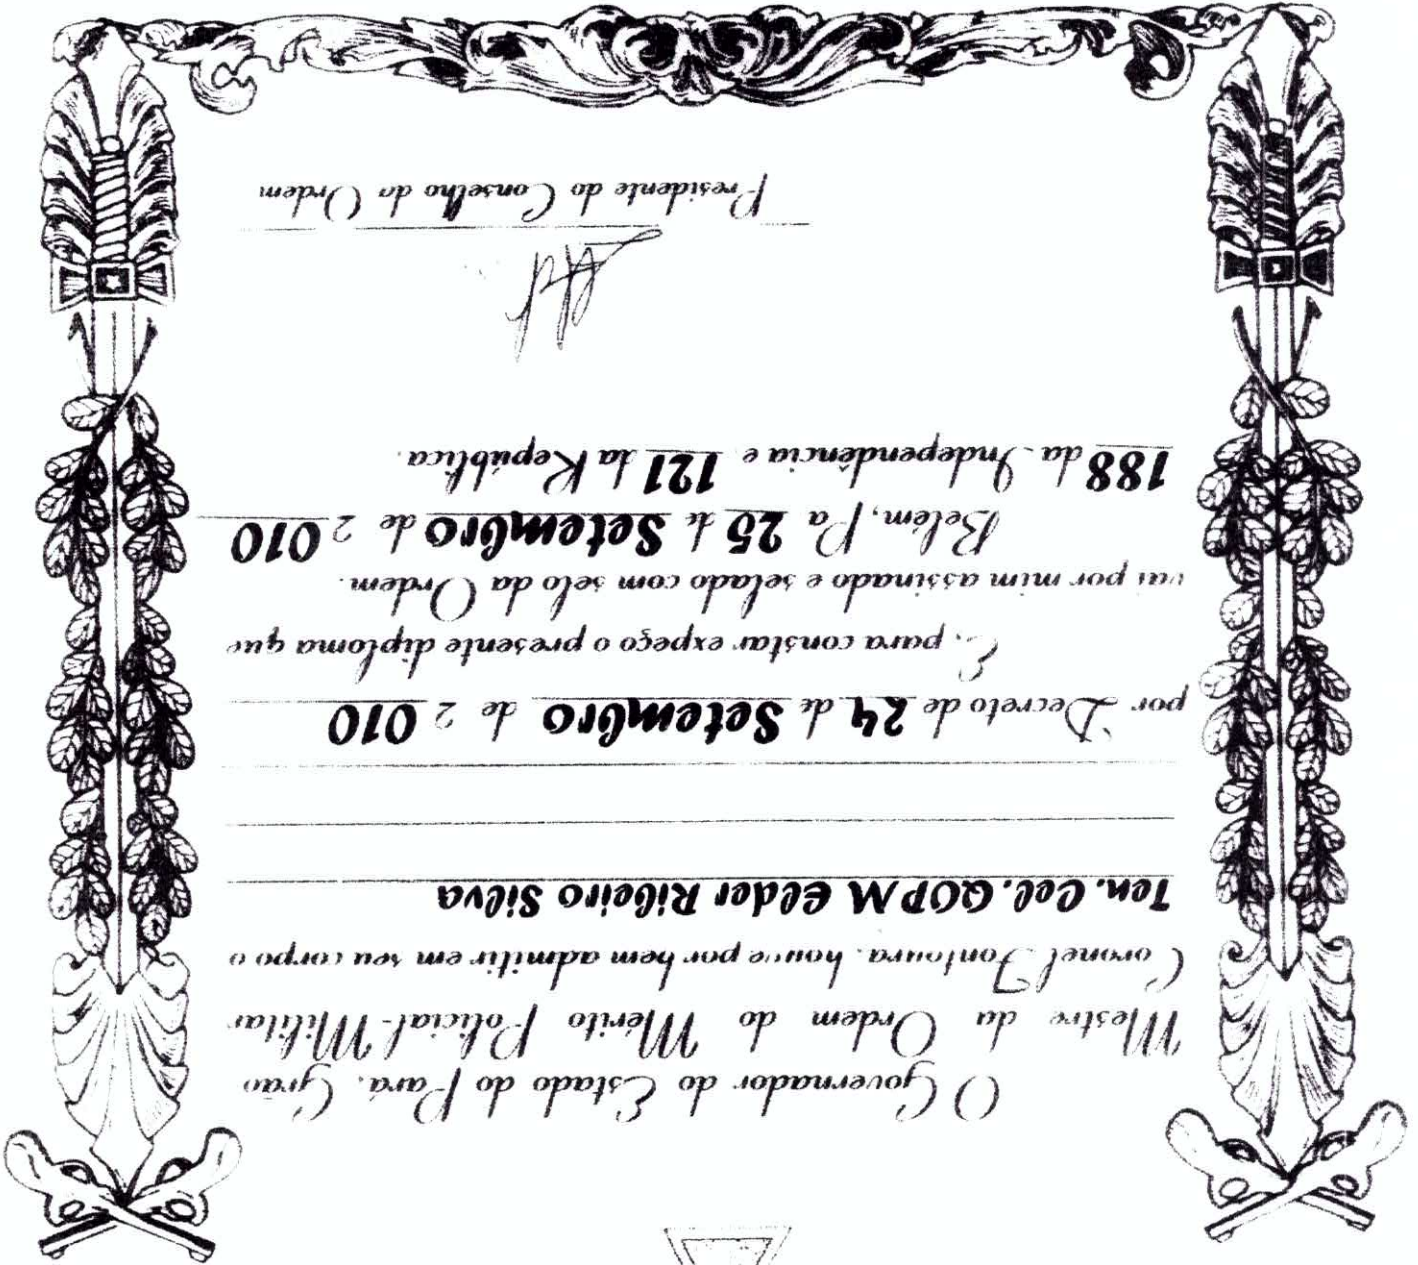 O Governador do Estado do Pará, Grão
Mestre da Ordem do Mérito Policial-Militar
Coronel Fontoura, houve por bem admitir em seu corpo o
Ten. Cel. QOPM Elder Ribeiro Silva
por Decreto de 24 de Setembro de 2 010
E, para constar expeço o presente diploma que
vai por mim assinado e selado com selo da Ordem.
Belém, Pa 25 de Setembro de 2 010
188 da Independência e 121 da República.
Presidente do Conselho da Ordem